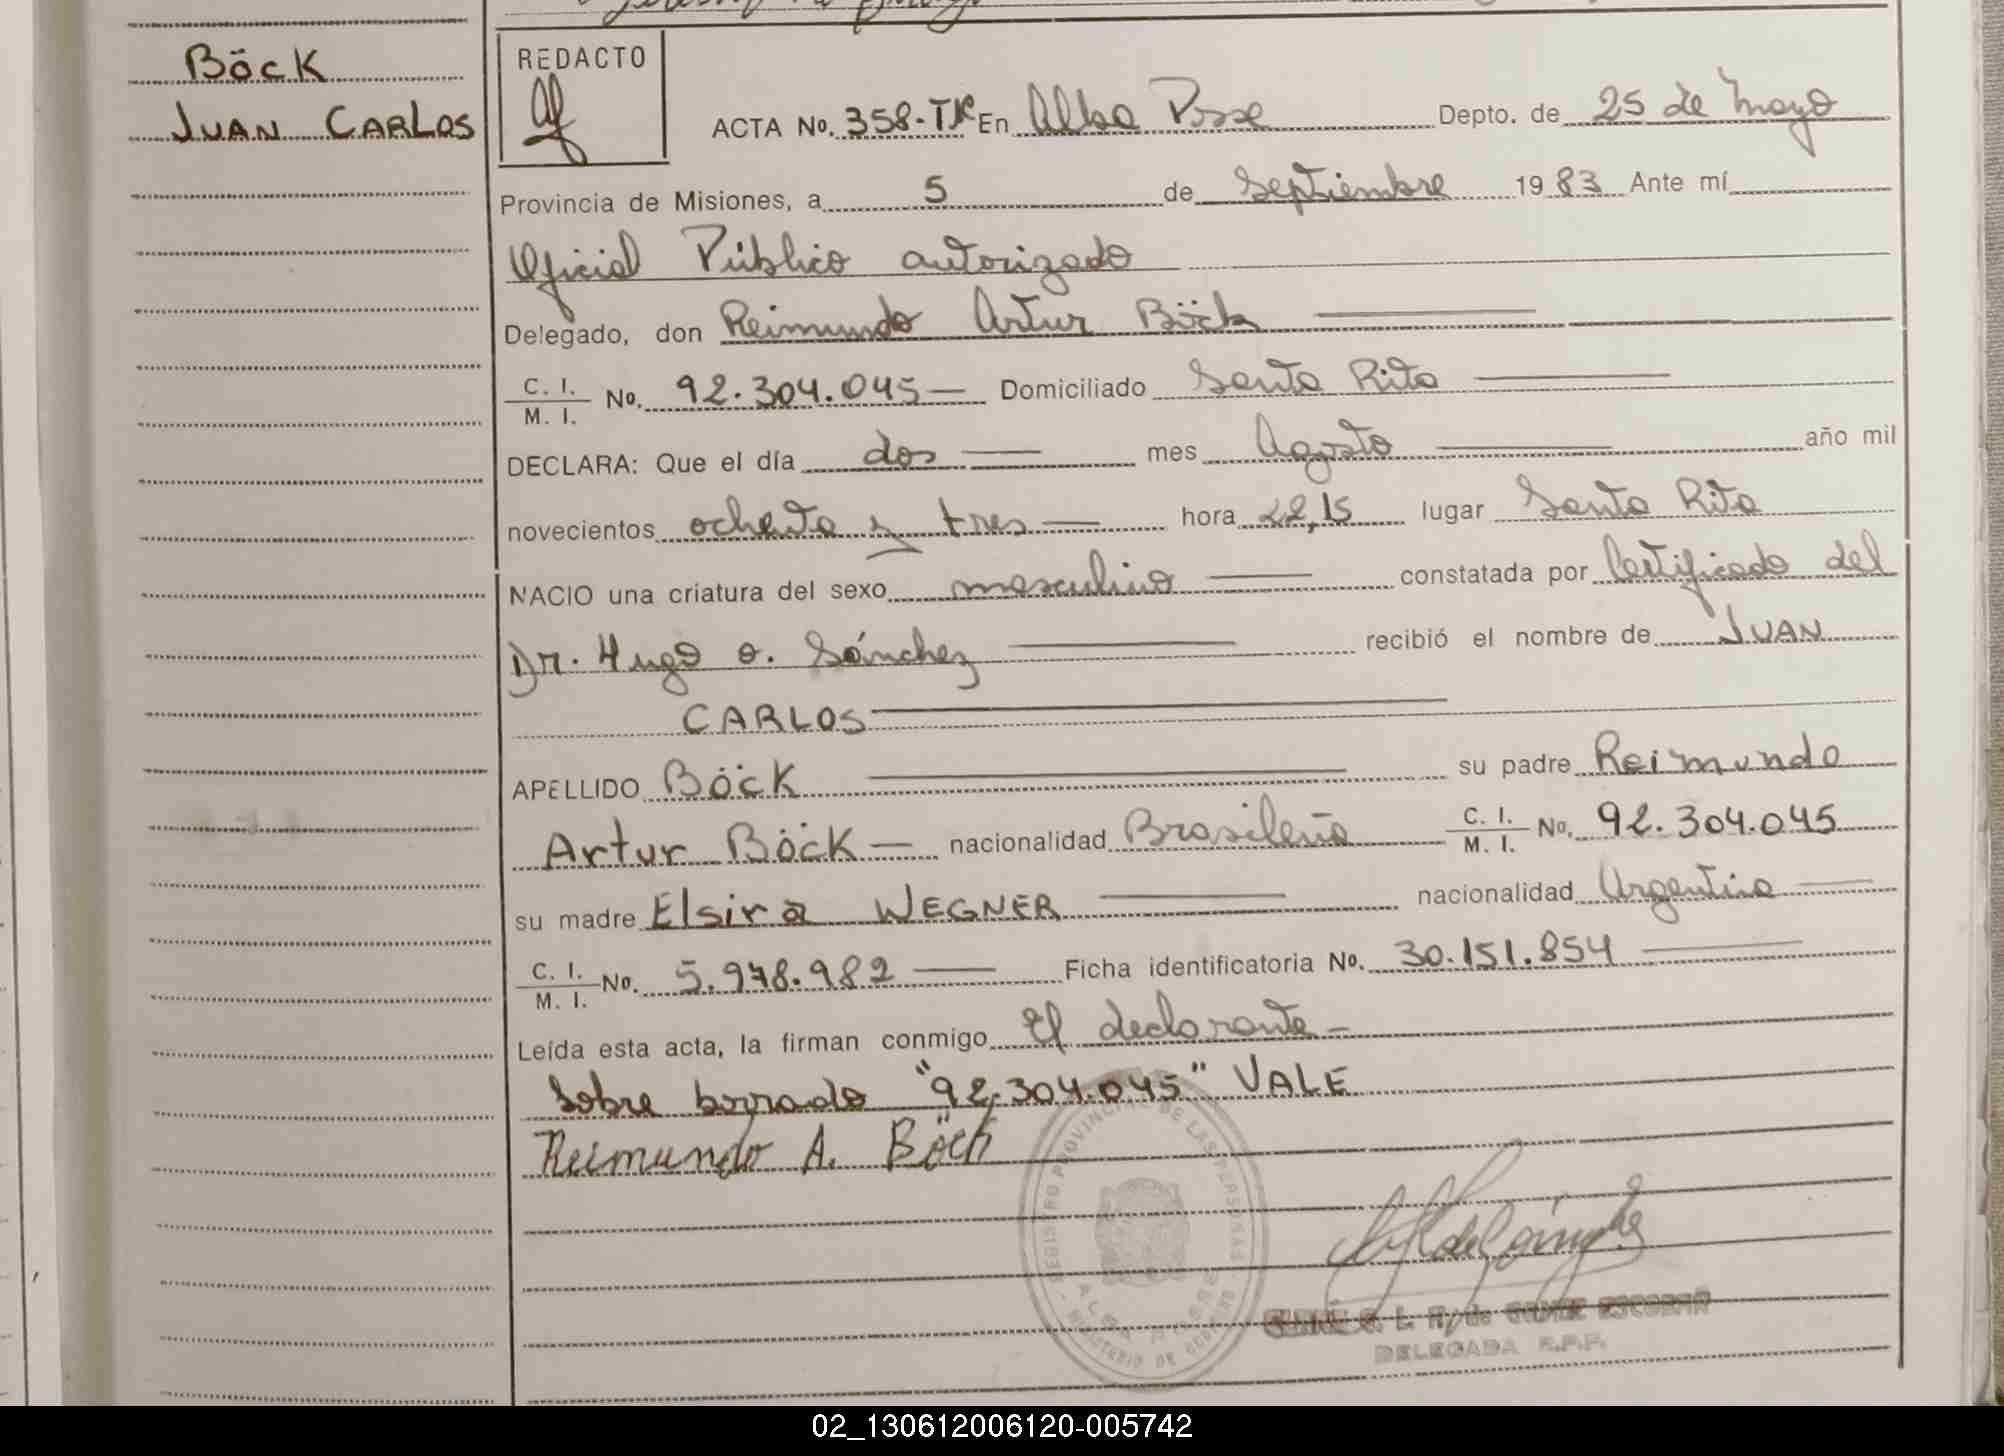 Böck
JUAN CARLOS
REDACTO
ACTA No. 358-TR En Alba Posse Depto. de 25 de Mayo
Provincia de Misiones, a 5 de Septiembre 1983 Ante mí
Oficial Público autorizado
Delegado, don Reimundo Artur Böck
C. I. / M. I. No. 92.304.045 Domiciliado Santa Rita
DECLARA: Que el día dos mes Agosto año mil
novecientos ochenta y tres hora 22,15 lugar Santa Rita
NACIO una criatura del sexo masculino constatada por Certificado del
Dr. Hugo O. Sánchez recibió el nombre de JUAN
CARLOS
APELLIDO BöcK su padre Reimundo
Artur BöcK nacionalidad Brasileña C. I. / M. I. No. 92.304.045
su madre Elsira WEGNER nacionalidad Argentina
C. I. / M. I. No. 5.978.982 Ficha identificatoria No. 30.151.854
Leída esta acta, la firman conmigo El declarante
Sobre borrado "92.304.045" VALE
Reimundo A. Böck
REGISTRO PROVINCIAL DE LAS PERSONAS
MINISTERIO DE GOBIERNO
DELEGADA R.P.P.
02_130612006120-005742